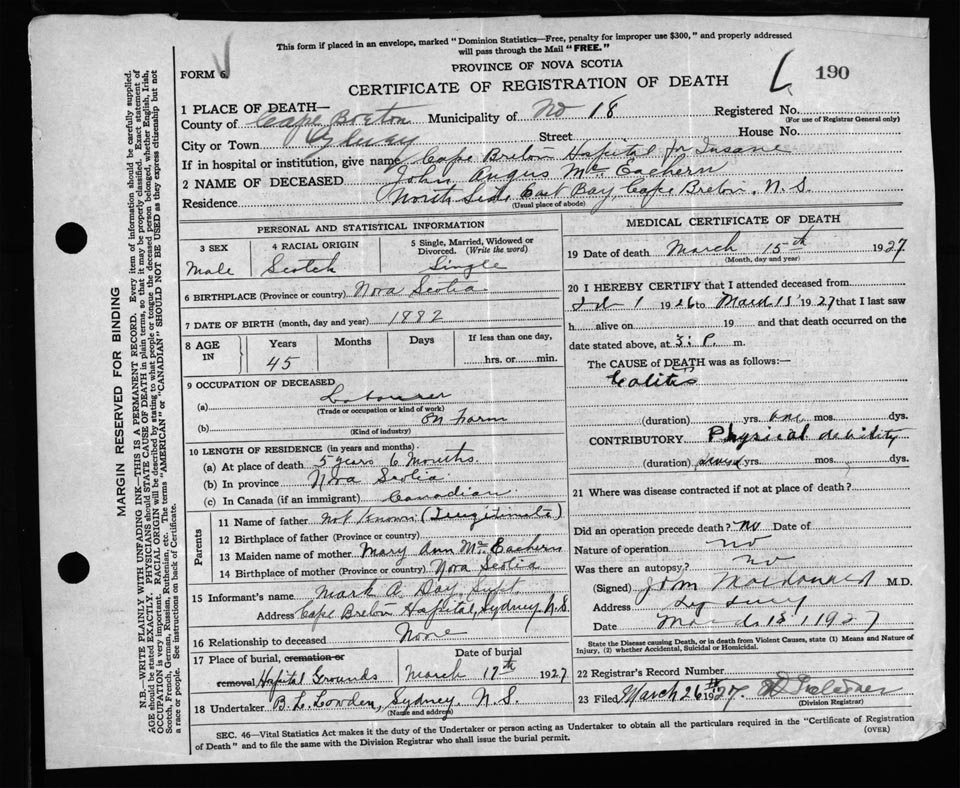 This form if placed in an envelope, marked "Dominion Statistics—Free, penalty for improper use $300," and properly addressed
will pass through the Mail "FREE."
FORM 6.
PROVINCE OF NOVA SCOTIA
CERTIFICATE OF REGISTRATION OF DEATH
L 190
1 PLACE OF DEATH—
County of Cape Breton Municipality of No 18 Registered No.
(For use of Registrar General only)
City or Town Sydney Street House No.
If in hospital or institution, give name Cape Breton Hospital for Insane
2 NAME OF DECEASED John Angus McEachern
Residence North Side East Bay, Cape Breton. N.S.
(Usual place of abode)
PERSONAL AND STATISTICAL INFORMATION
3 SEX
Male
4 RACIAL ORIGIN
Scotch
5 Single, Married, Widowed or
Divorced. (Write the word)
Single
6 BIRTHPLACE (Province or country) Nova Scotia
7 DATE OF BIRTH (month, day and year) 1882
8 AGE IN
Years Months Days If less than one day,
45 hrs. or min.
9 OCCUPATION OF DECEASED
(a) Labourer
(Trade or occupation or kind of work)
(b) On Farm
(Kind of industry)
10 LENGTH OF RESIDENCE (in years and months)
(a) At place of death 5 years 6 months.
(b) In province Nova Scotia
(c) In Canada (if an immigrant) Canadian
Parents
11 Name of father Not known (Illegitimate)
12 Birthplace of father (Province or country)
13 Maiden name of mother Mary Ann McEachern
14 Birthplace of mother (Province or country) Nova Scotia
15 Informant's name Mark A. Day, Supt.
Address Cape Breton Hospital, Sydney N.S.
16 Relationship to deceased None
17 Place of burial, cremation or
removal Hospital Grounds
Date of burial
March 17th 1927
18 Undertaker B. L. Lowden, Sydney. N.S.
(Name and address)
MEDICAL CERTIFICATE OF DEATH
19 Date of death March 15th 1927
(Month, day and year)
20 I HEREBY CERTIFY that I attended deceased from
1 1926 to March 15 1927 that I last saw
h alive on 19 and that death occurred on the
date stated above, at 3: P. m.
The CAUSE of DEATH was as follows:—
Colitis
(duration) yrs. one mos. dys.
CONTRIBUTORY Physical debility
(duration) several yrs. mos. dys.
21 Where was disease contracted if not at place of death?
Did an operation precede death? no Date of
Nature of operation no
Was there an autopsy? no
(Signed) John Macdonald M.D.
Address Sydney
Date March 15, 1927
State the Disease causing Death, or in death from Violent Causes, state (1) Means and Nature of
Injury, (2) whether Accidental, Suicidal or Homicidal.
22 Registrar's Record Number
23 Filed March 26th 1927.
(Division Registrar)
SEC. 46—Vital Statistics Act makes it the duty of the Undertaker or person acting as Undertaker to obtain all the particulars required in the "Certificate of Registration
of Death" and to file the same with the Division Registrar who shall issue the burial permit.
(OVER)
MARGIN RESERVED FOR BINDING
N.B.—WRITE PLAINLY WITH UNFADING INK—THIS IS A PERMANENT RECORD. Every item of information should be carefully supplied.
AGE should be stated EXACTLY. PHYSICIANS should STATE CAUSE OF DEATH in plain terms, so that it may be properly classified. Exact statement of
OCCUPATION is very important. RACIAL ORIGIN will be described by stating to what people or tongue the deceased person belonged, whether English, Irish,
Scotch, French, German, Russian, Ruthenian, etc. The terms "AMERICAN" or "CANADIAN" SHOULD NOT BE USED as they express citizenship but not
a race or people. See instructions on back of Certificate.